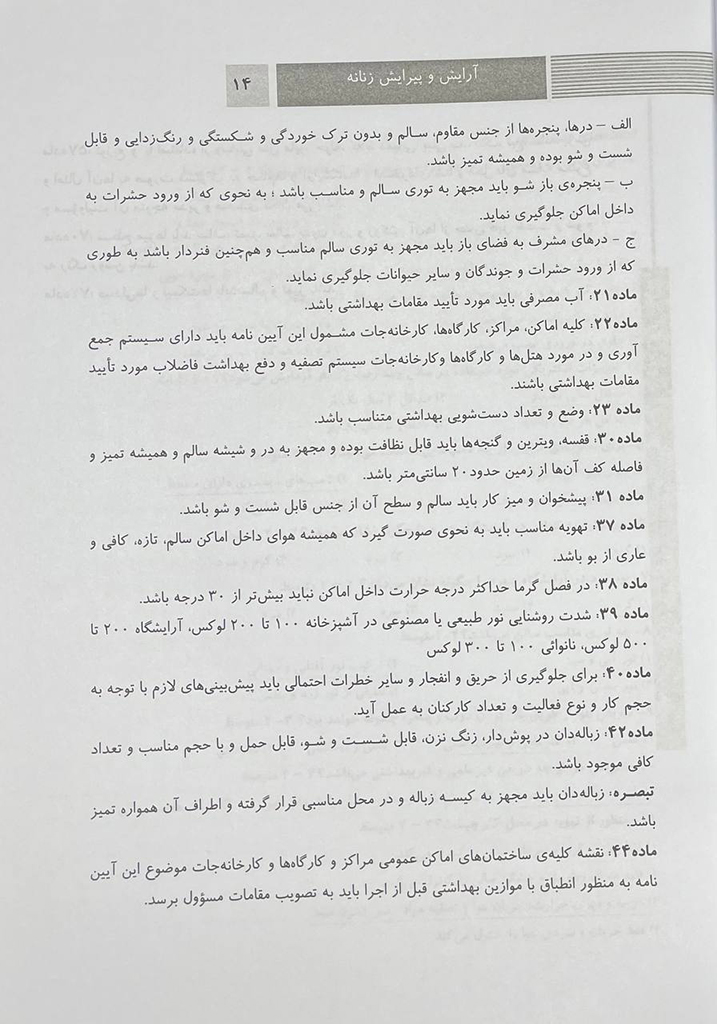 آرایش و پیرایش زنانه
۱۴
الف – درها، پنجره‌ها از جنس مقاوم، سالم و بدون ترک خوردگی و شکستگی و رنگ‌زدایی و قابل
شست و شو بوده و همیشه تمیز باشد.
ب – پنجره‌ی باز شو باید مجهز به توری سالم و مناسب باشد ؛ به نحوی که از ورود حشرات به
داخل اماکن جلوگیری نماید.
ج – درهای مشرف به فضای باز باید مجهز به توری سالم مناسب و هم‌چنین فنردار باشد به طوری
که از ورود حشرات و جوندگان و سایر حیوانات جلوگیری نماید.
ماده۲۱: آب مصرفی باید مورد تأیید مقامات بهداشتی باشد.
ماده۲۲: کلیه اماکن، مراکز، کارگاه‌ها، کارخانه‌جات مشمول این آیین نامه باید دارای سیستم جمع
آوری و در مورد هتل‌ها و کارگاه‌ها وکارخانه‌جات سیستم تصفیه و دفع بهداشت فاضلاب مورد تأیید
مقامات بهداشتی باشند.
ماده ۲۳: وضع و تعداد دست‌شویی بهداشتی متناسب باشد.
ماده۳۰: قفسه، ویترین و گنجه‌ها باید قابل نظافت بوده و مجهز به در و شیشه سالم و همیشه تمیز و
فاصله کف آن‌ها از زمین حدود۲۰ سانتی‌متر باشد.
ماده ۳۱: پیشخوان و میز کار باید سالم و سطح آن از جنس قابل شست و شو باشد.
ماده ۳۷: تهویه مناسب باید به نحوی صورت گیرد که همیشه هوای داخل اماکن سالم، تازه، کافی و
عاری از بو باشد.
ماده ۳۸: در فصل گرما حداکثر درجه حرارت داخل اماکن نباید بیش‌تر از ۳۰ درجه باشد.
ماده ۳۹: شدت روشنایی نور طبیعی یا مصنوعی در آشپزخانه ۱۰۰ تا ۲۰۰ لوکس، آرایشگاه ۲۰۰ تا
۵۰۰ لوکس، نانوائی ۱۰۰ تا ۳۰۰ لوکس
ماده۴۰: برای جلوگیری از حریق و انفجار و سایر خطرات احتمالی باید پیش‌بینی‌های لازم با توجه به
حجم کار و نوع فعالیت و تعداد کارکنان به عمل آید.
ماده۴۲: زباله‌دان در پوش‌دار، زنگ نزن، قابل شست و شو، قابل حمل و با حجم مناسب و تعداد
کافی موجود باشد.
تبصره: زباله‌دان باید مجهز به کیسه زباله و در محل مناسبی قرار گرفته و اطراف آن همواره تمیز
باشد.
ماده۴۴: نقشه کلیه‌ی ساختمان‌های اماکن عمومی مراکز و کارگاه‌ها و کارخانه‌جات موضوع این آیین
نامه به منظور انطباق با موازین بهداشتی قبل از اجرا باید به تصویب مقامات مسؤول برسد.